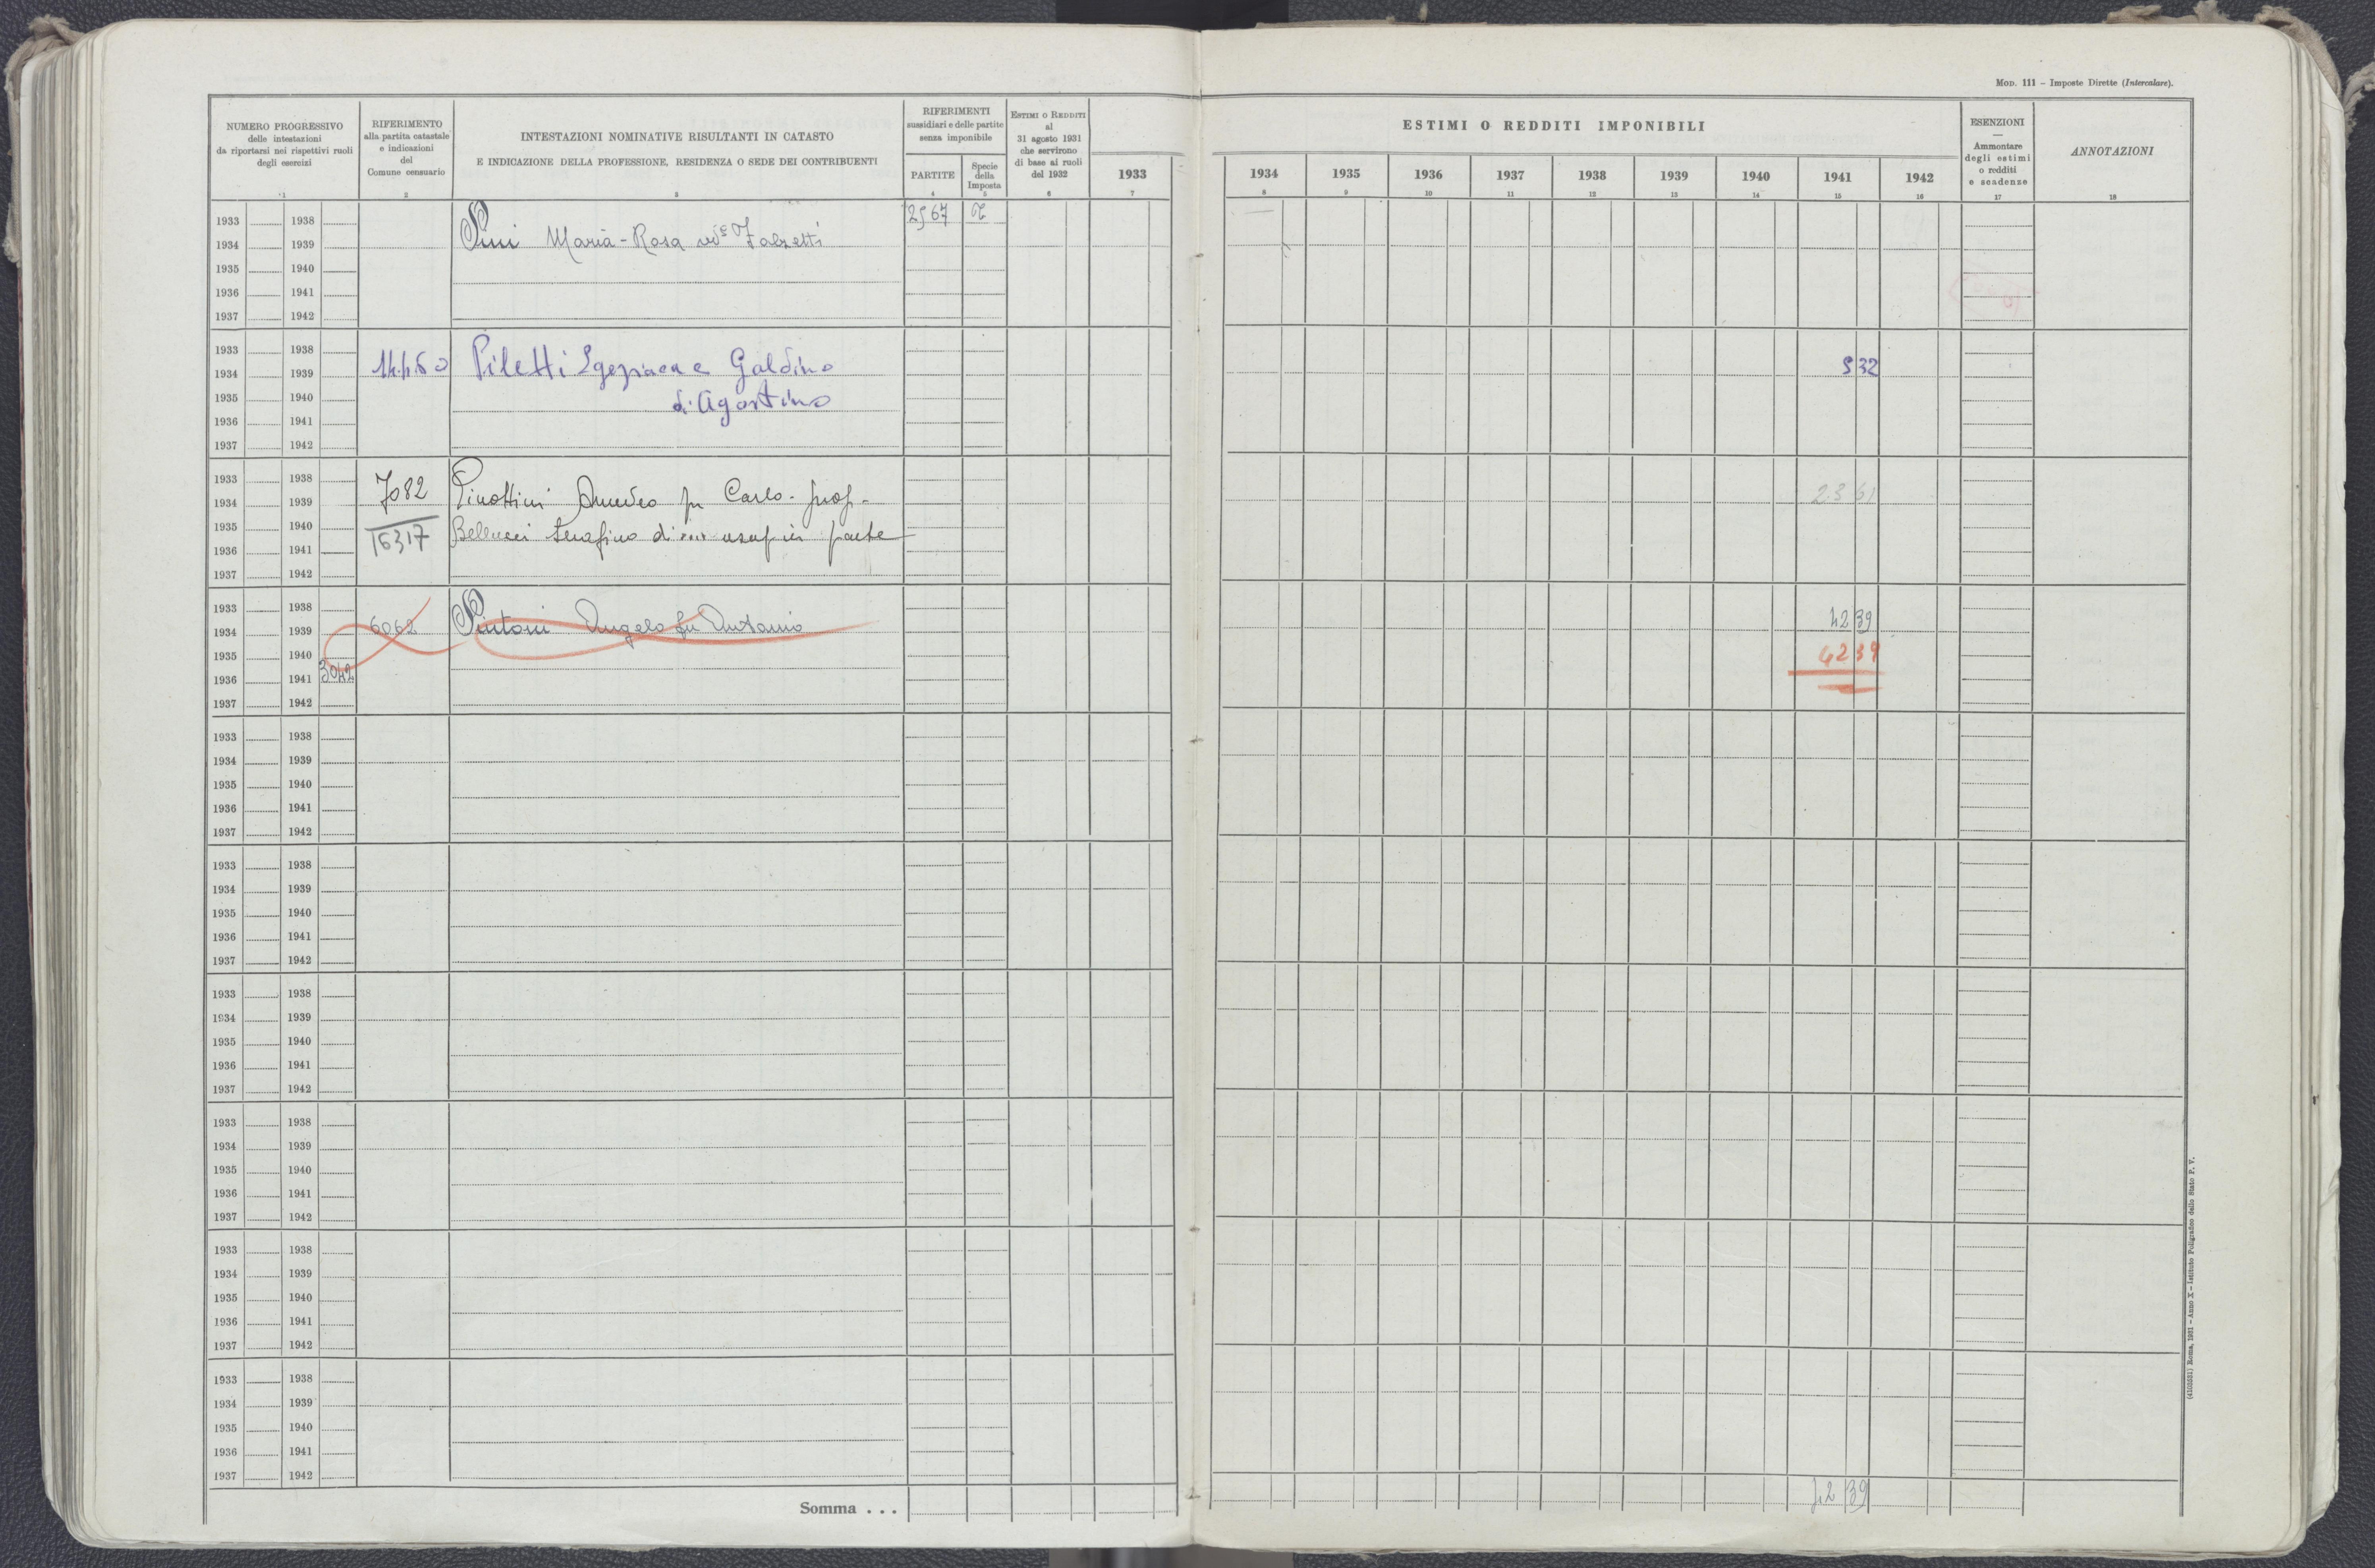 MOD. 111 – Imposte Dirette (Intercalare).
NUMERO PROGRESSIVO
delle intestazioni
da riportarsi nei rispettivi ruoli
degli esercizi
1
RIFERIMENTO
alla partita catastale
e indicazioni
del
Comune censuario
2
INTESTAZIONI NOMINATIVE RISULTANTI IN CATASTO
E INDICAZIONE DELLA PROFESSIONE, RESIDENZA O SEDE DEI CONTRIBUENTI
3
RIFERIMENTI
sussidiari e delle partite
senza imponibile
PARTITE
4
Specie
della
Imposta
5
ESTIMI O REDDITI
al
31 agosto 1931
che servirono
di base ai ruoli
del 1932
6
1933
7
ESTIMI O REDDITI IMPONIBILI
1934 1935 1936 1937 1938 1939 1940 1941 1942
8 9 10 11 12 13 14 15 16
ESENZIONI
—
Ammontare
degli estimi
o redditi
e scadenze
17
ANNOTAZIONI
18
1933 1938 2567
1934 1939 Pini Maria-Rosa
1935 1940
1936 1941
1937 1942
1933 1938
1934 1939 Piletti Galdino 5 32
1935 1940 di Agostino
1936 1941
1937 1942
1933 1938
1934 1939 7082 Pinottini Amedeo fu Carlo - prop - 23 61
1935 1940 16317 Bellucci Serafino di usuf in parte
1936 1941
1937 1942
1933 1938
1934 1939 6062 Pintoni Angelo fu Antonio 42 39
1935 1940 42 39
1936 1941 3042
1937 1942
1933 1938
1934 1939
1935 1940
1936 1941
1937 1942
1933 1938
1934 1939
1935 1940
1936 1941
1937 1942
1933 1938
1934 1939
1935 1940
1936 1941
1937 1942
1933 1938
1934 1939
1935 1940
1936 1941
1937 1942
1933 1938
1934 1939
1935 1940
1936 1941
1937 1942
1933 1938
1934 1939
1935 1940
1936 1941
1937 1942
Somma . . . 42 39
(4103531) Roma, 1931 – Anno X – Istituto Poligrafico dello Stato P. V.